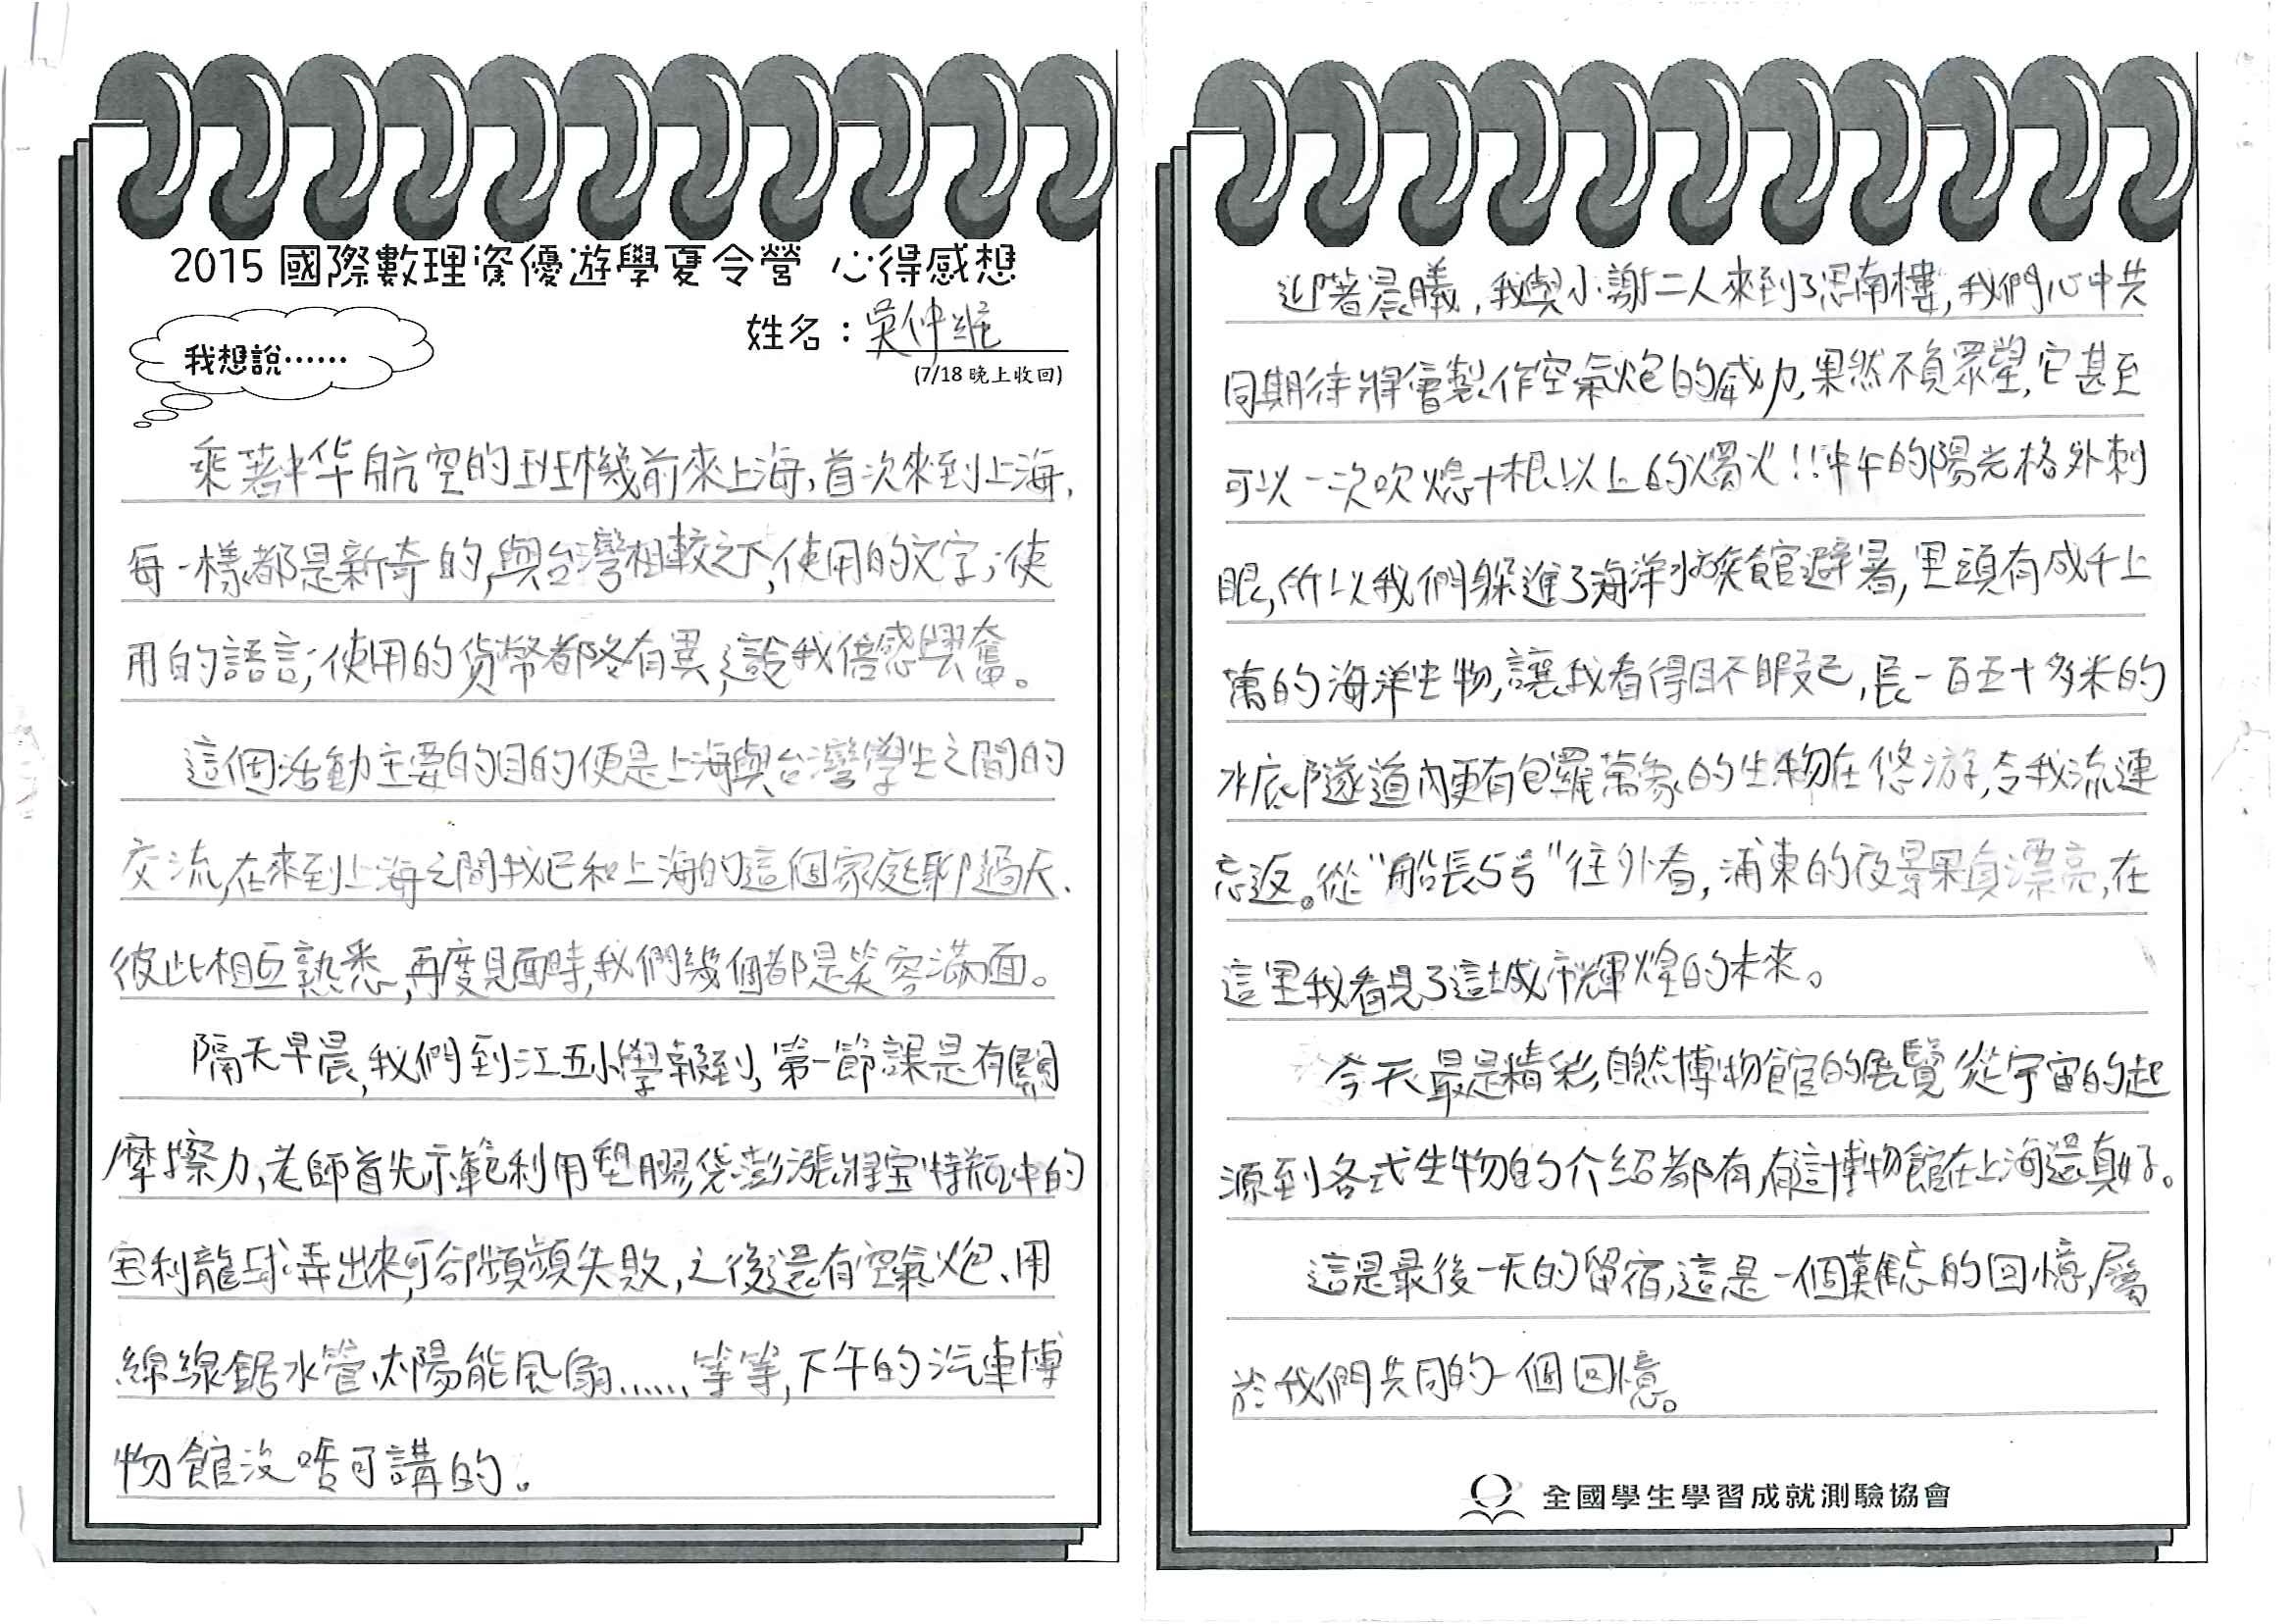 2015 國際數理資優遊學夏令營 心得感想
我想說……
姓名：吳仲維
(7/18 晚上收回)
乘著中华航空的班機前來上海，首次來到上海，
每一樣都是新奇的，與台灣相較之下，使用的文字；使
用的語言；使用的貨幣都各有異，這令我倍感興奮。
這個活動主要的目的便是上海與台灣學生之間的
交流，在來到上海之間我已和上海的這個家庭聊過天、
彼此相互熟悉，再度見面時，我們幾個都是笑容滿面。
隔天早晨，我們到江五小學報到，第一節課是有關
摩擦力，老師首先示範利用塑膠袋澎漲將宝特瓶中的
宝利龍球弄出來，可卻頻頻失敗，之後還有空氣炮、用
綿線鋸水管、太陽能風扇……等等，下午的汽車博
物館沒啥可講的。
迎著晨曦，我與小謝二人來到了思南樓，我們心中共
同期待將會製作空氣炮的威力，果然不負眾望，它甚至
可以一次吹熄十根以上的燭火!!中午的陽光格外刺
眼，所以我們躲進了海洋水族館避暑，里頭有成千上
萬的海洋生物，讓我看得目不暇己，長一百五十多米的
水底隧道內更有包羅萬象的生物在悠游，令我流連
忘返。從"船長5号"往外看，浦東的夜景果真漂亮，在
這里我看見了這城市輝煌的未來。
今天最是精彩，自然博物館的展覽從宇宙的起
源到各式生物的介紹都有，有這博物館在上海還真好。
這是最後一天的留宿，這是一個難忘的回憶，屬
於我們共同的一個回憶。
全國學生學習成就測驗協會